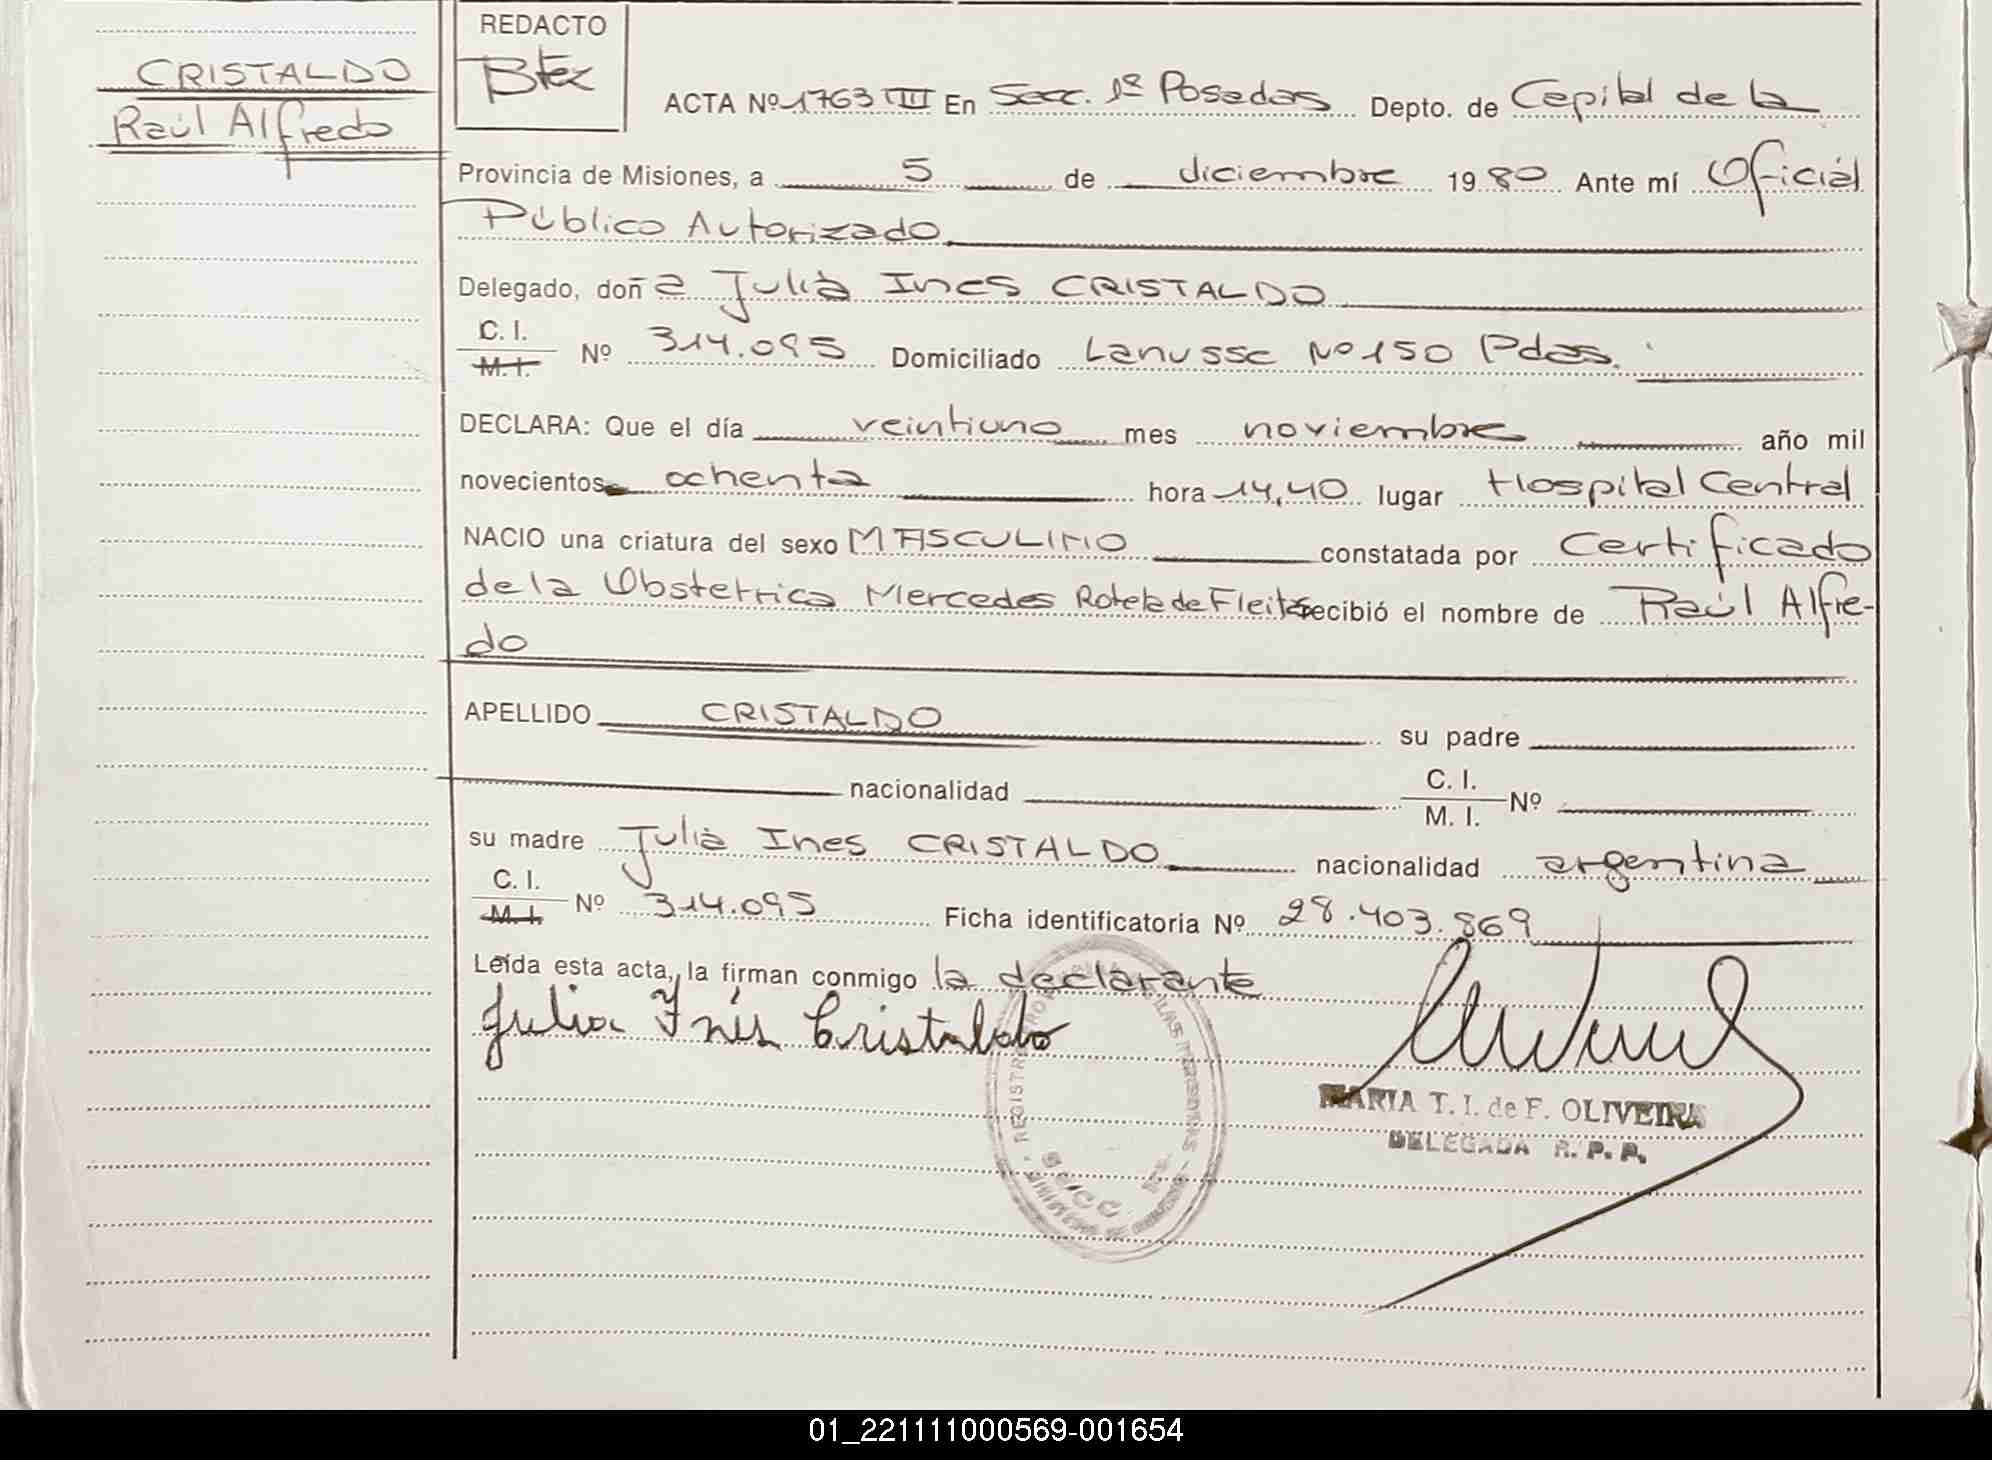 CRISTALDO
Raúl Alfredo
REDACTO
ACTA Nº 1763 III En Secc. 1ª Posadas Depto. de Capital de la
Provincia de Misiones, a 5 de diciembre 1980 Ante mí Oficial
Público Autorizado
Delegado, doña Julia Ines CRISTALDO
C. I.
M. I. Nº 314.095 Domiciliado Lanusse Nº 150 Pdas.
DECLARA: Que el día veintiuno mes noviembre año mil
novecientos ochenta hora 14,40 lugar Hospital Central
NACIO una criatura del sexo MASCULINO constatada por Certificado
de la Obstetrica Mercedes Rotela de Fleitas recibió el nombre de Raúl Alfre-
do
APELLIDO CRISTALDO su padre
nacionalidad C. I. Nº
M. I.
su madre Julia Ines CRISTALDO nacionalidad argentina
C. I.
M. I. Nº 314.095 Ficha identificatoria Nº 28.403.869
Leída esta acta, la firman conmigo la declarante
Julia Inés Cristaldo
MARIA T. I. de F. OLIVEIRA
DELEGADA R. P. P.
01_221111000569-001654